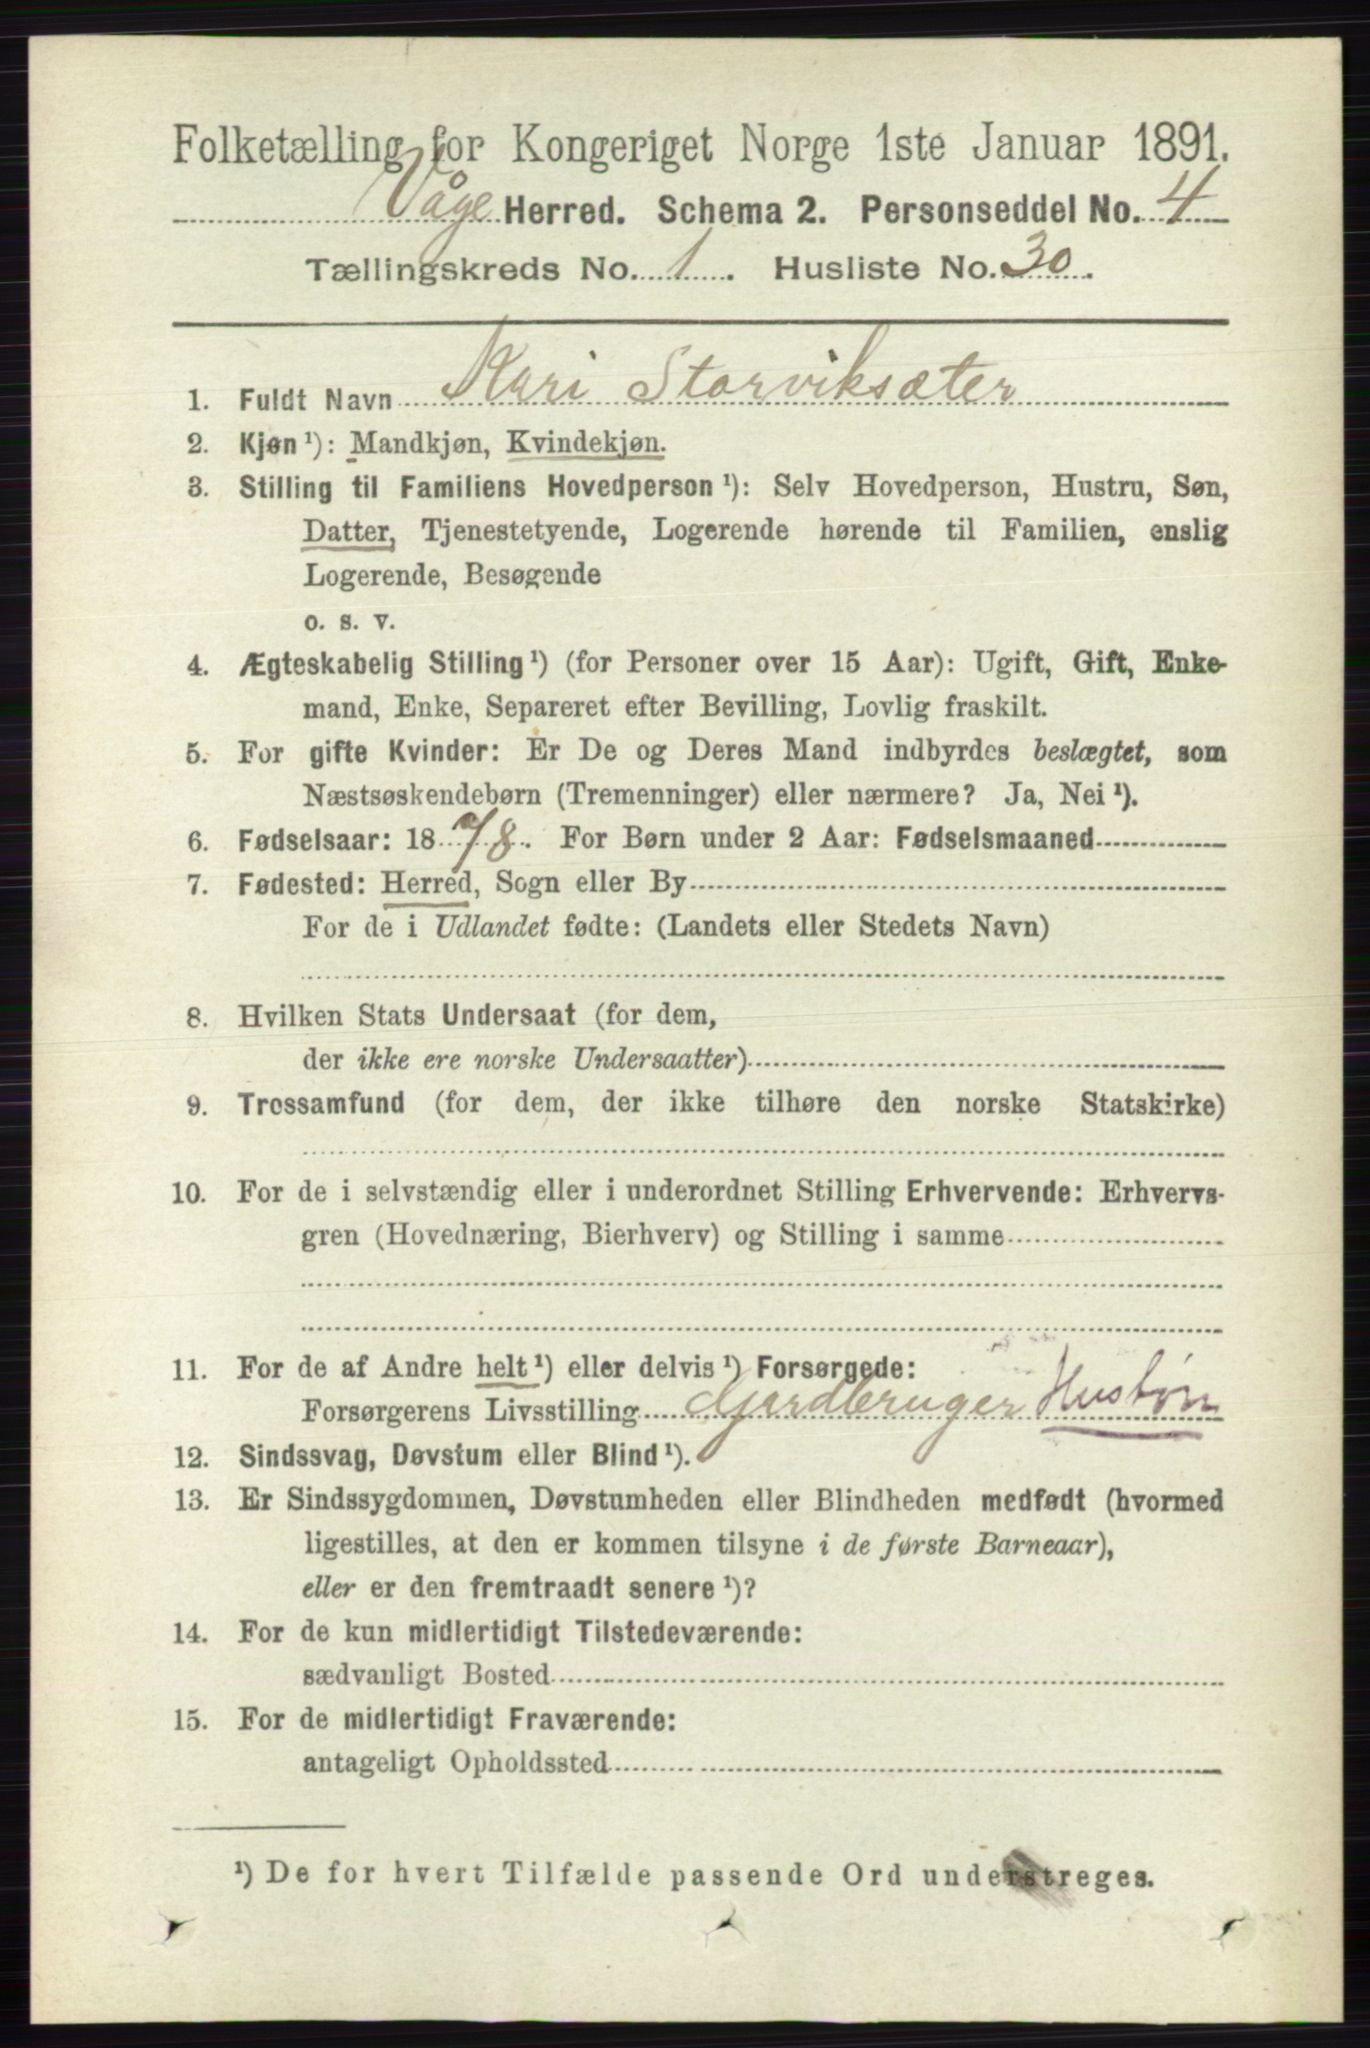 Folketælling for Kongeriget Norge 1ste Januar 1891.
Våge Herred. Schema 2. Personseddel No. 4
Tællingskreds No. 1. Husliste No. 30.
1. Fuldt Navn Kari Storviksæter
2. Kjøn¹): Mandkjøn, Kvindekjøn.
3. Stilling til Familiens Hovedperson¹): Selv Hovedperson, Hustru, Søn,
Datter, Tjenestetyende, Logerende hørende til Familien, enslig
Logerende, Besøgende
o. s. v.
4. Ægteskabelig Stilling¹) (for Personer over 15 Aar): Ugift, Gift, Enke-
mand, Enke, Separeret efter Bevilling, Lovlig fraskilt.
5. For gifte Kvinder: Er De og Deres Mand indbyrdes beslægtet, som
Næstsøskendebørn (Tremenninger) eller nærmere? Ja, Nei¹).
6. Fødselsaar: 1878. For Børn under 2 Aar: Fødselsmaaned
7. Fødested: Herred, Sogn eller By
For de i Udlandet fødte: (Landets eller Stedets Navn)
8. Hvilken Stats Undersaat (for dem,
der ikke ere norske Undersaatter)
9. Trossamfund (for dem, der ikke tilhøre den norske Statskirke)
10. For de i selvstændig eller i underordnet Stilling Erhvervende: Erhvervs-
gren (Hovednæring, Bierhverv) og Stilling i samme
11. For de af Andre helt¹) eller delvis¹) Forsørgede:
Forsørgerens Livsstilling Gjardbruger Husbðn
12. Sindssvag, Døvstum eller Blind¹).
13. Er Sindssygdommen, Døvstumheden eller Blindheden medfødt (hvormed
ligestilles, at den er kommen tilsyne i de første Barneaar),
eller er den fremtraadt senere¹)?
14. For de kun midlertidigt Tilstedeværende:
sædvanligt Bosted
15. For de midlertidigt Fraværende:
antageligt Opholdssted
¹) De for hvert Tilfælde passende Ord understreges.